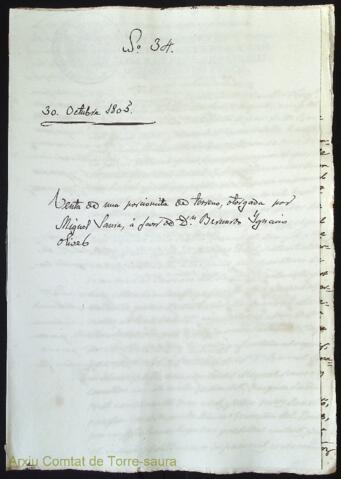 No. 34.
30. Octubre 1803.
Venta de una porcioncita de terreno, otorgada por
Miguel Saura, à favor de Dn. Bernardo Ygnacio
Olives
Arxiu Comtat de Torre-saura